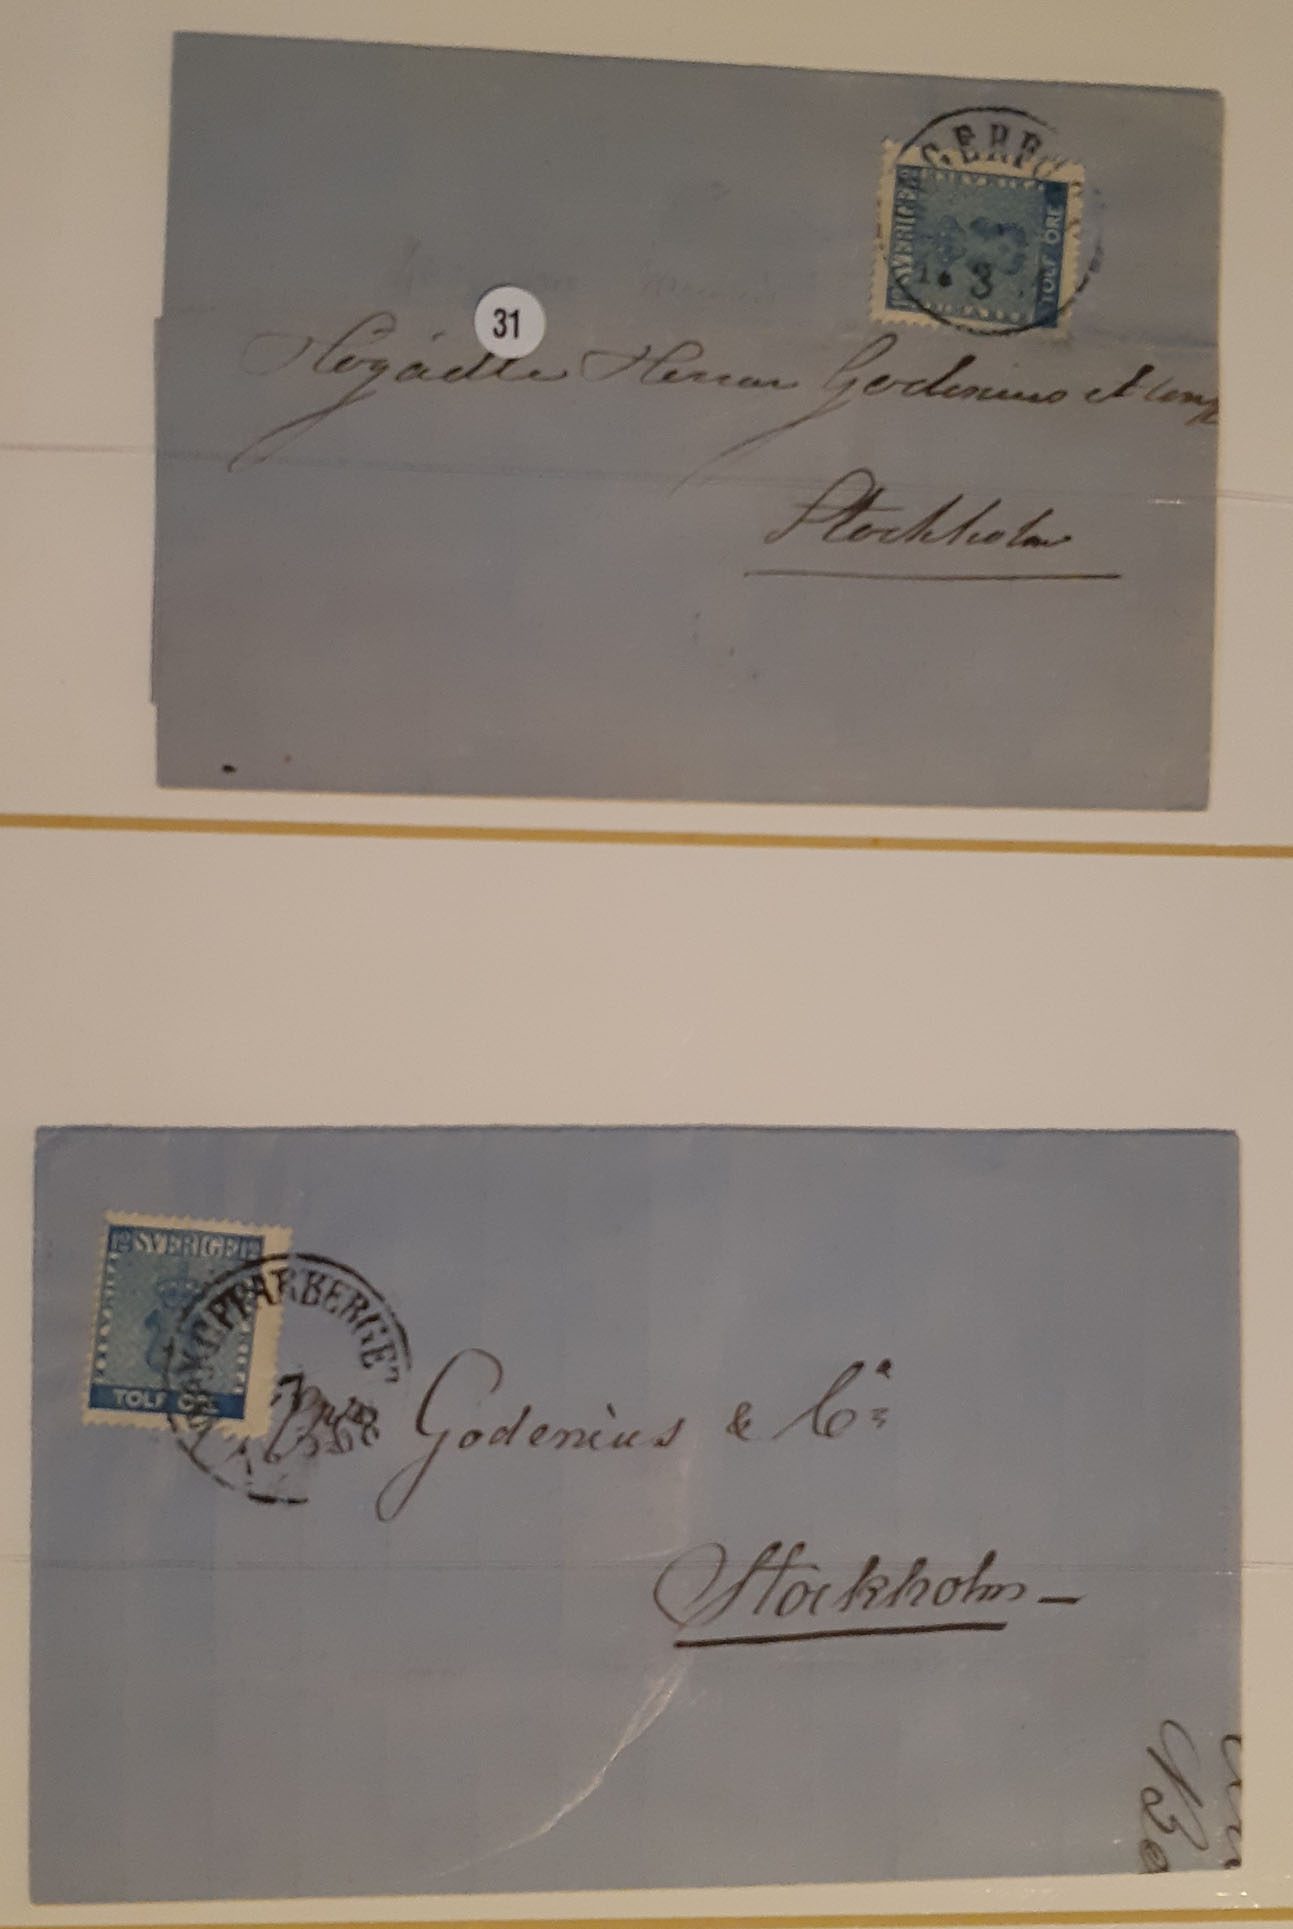 SVERIGE
TOLF ÖRE
3
31
Högädle Herrar Godenius et Comp
Stockholm
12 SVERIGE 12
TOLF ÖRE
KOPPARBERGET
7
Godenius & Co
Stockholm